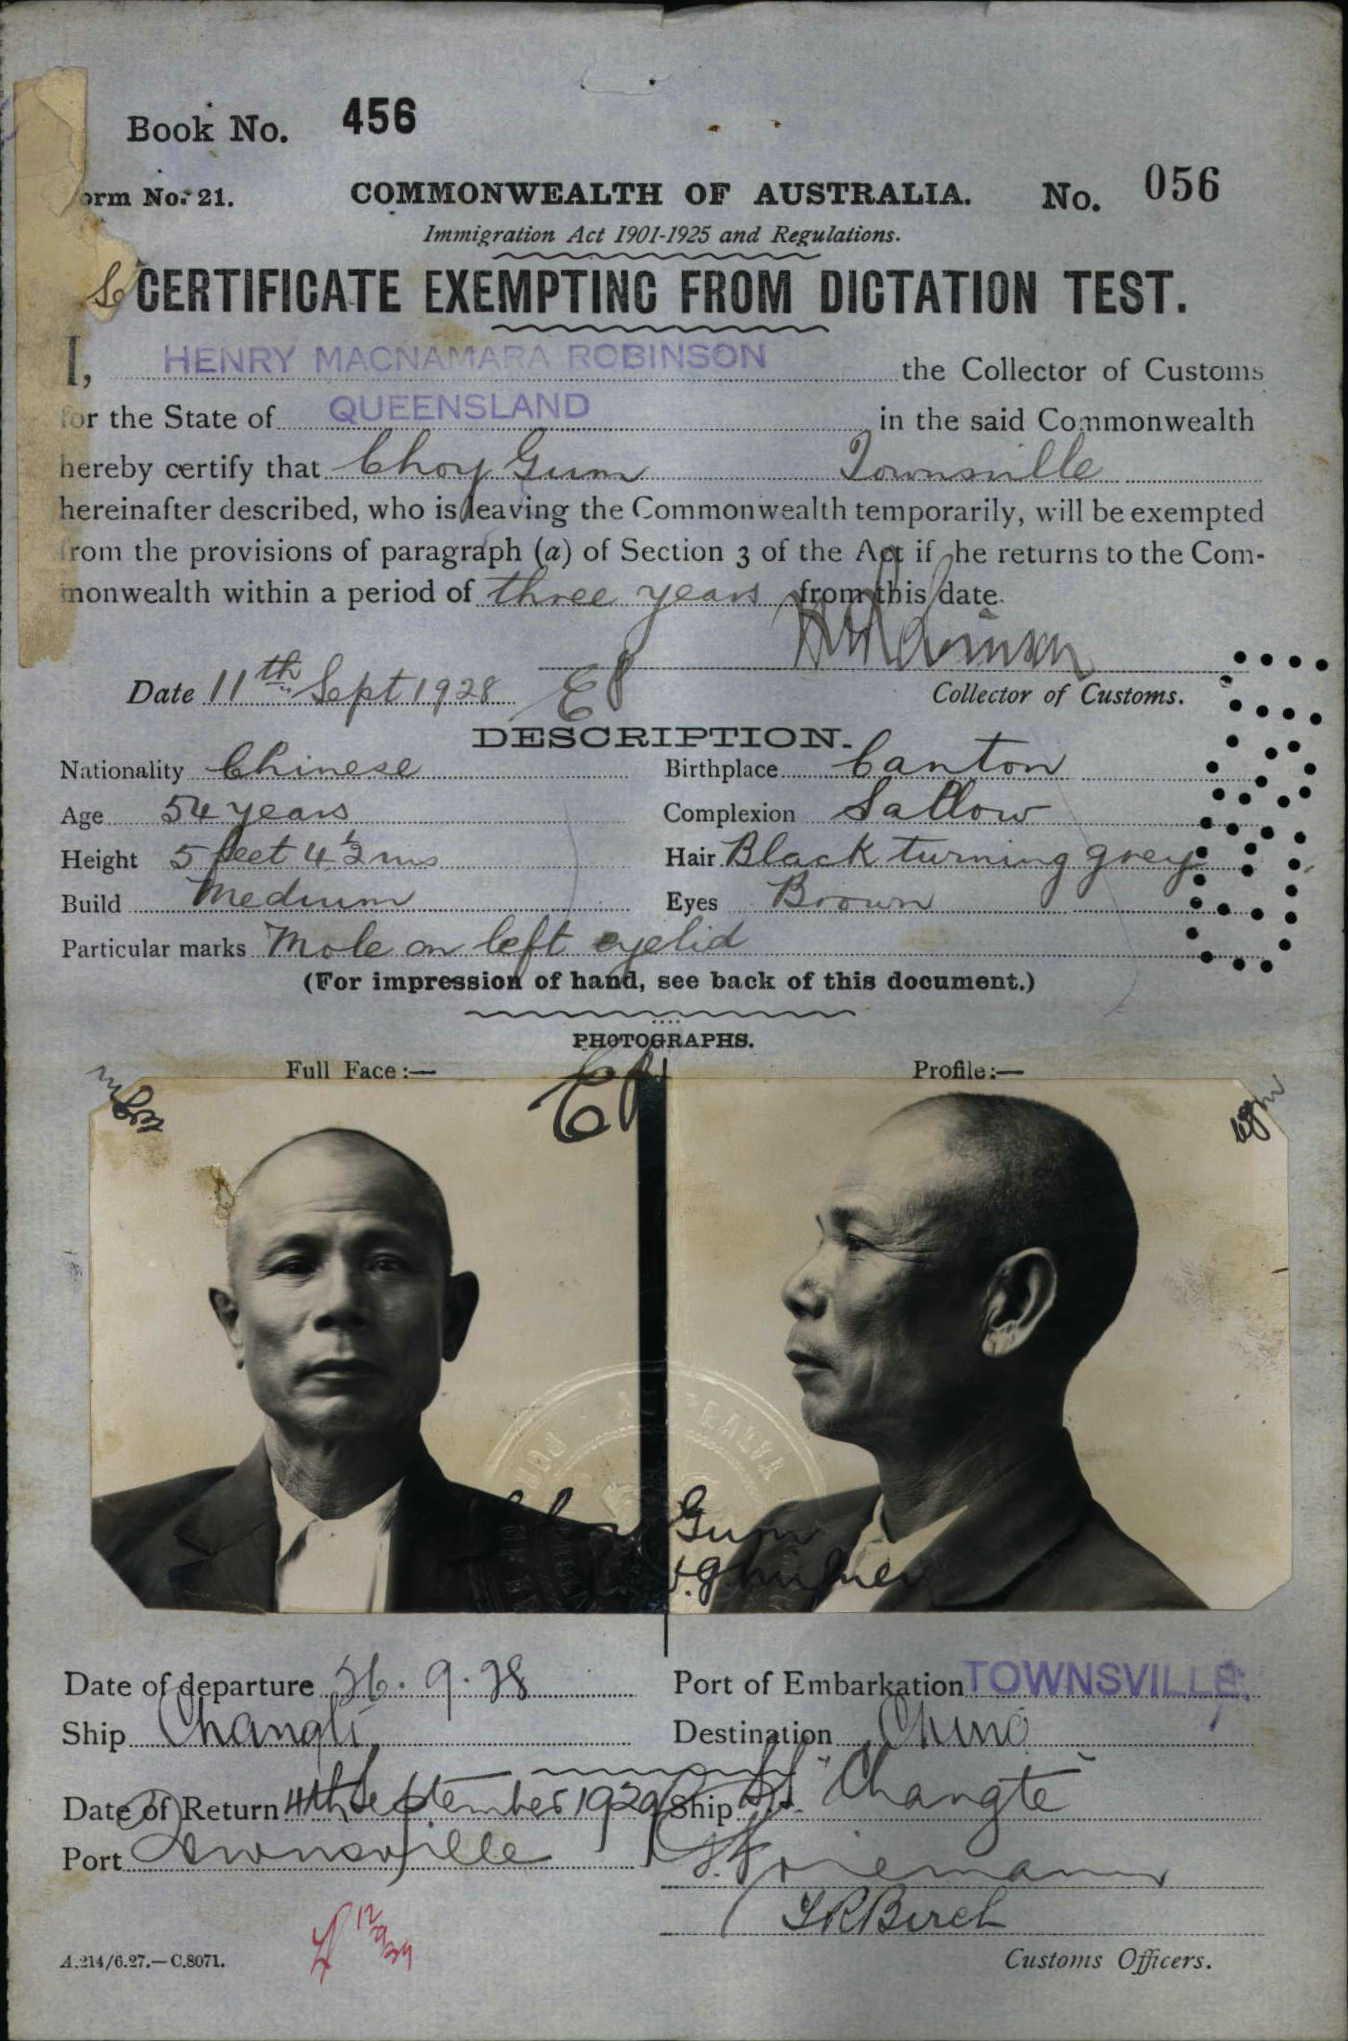 Book No. 456
orm No. 21. COMMONWEALTH OF AUSTRALIA. No. 056
Immigration Act 1901-1925 and Regulations.
CERTIFICATE EXEMPTING FROM DICTATION TEST.
I, HENRY MACNAMARA ROBINSON the Collector of Customs
for the State of QUEENSLAND in the said Commonwealth
hereby certify that Choy Gum Townsville
hereinafter described, who is leaving the Commonwealth temporarily, will be exempted
from the provisions of paragraph (a) of Section 3 of the Act if he returns to the Com-
monwealth within a period of three years from this date.
Date 11th Sept 1928
Collector of Customs.
DESCRIPTION.
Nationality Chinese Birthplace Canton
Age 54 years Complexion Sallow
Height 5 feet 4½ ins Hair Black turning grey
Build Medium Eyes Brown
Particular marks Mole on left eyelid
(For impression of hand, see back of this document.)
PHOTOGRAPHS.
Full Face:— Profile:—
Gum
Date of departure 26.9.28 Port of Embarkation TOWNSVILLE.
Ship Changte Destination China
Date of Return 11th September 1929 Ship SS "Changte"
Port Townsville
T R Birch
A.214/6.27.—C.8071. Customs Officers.